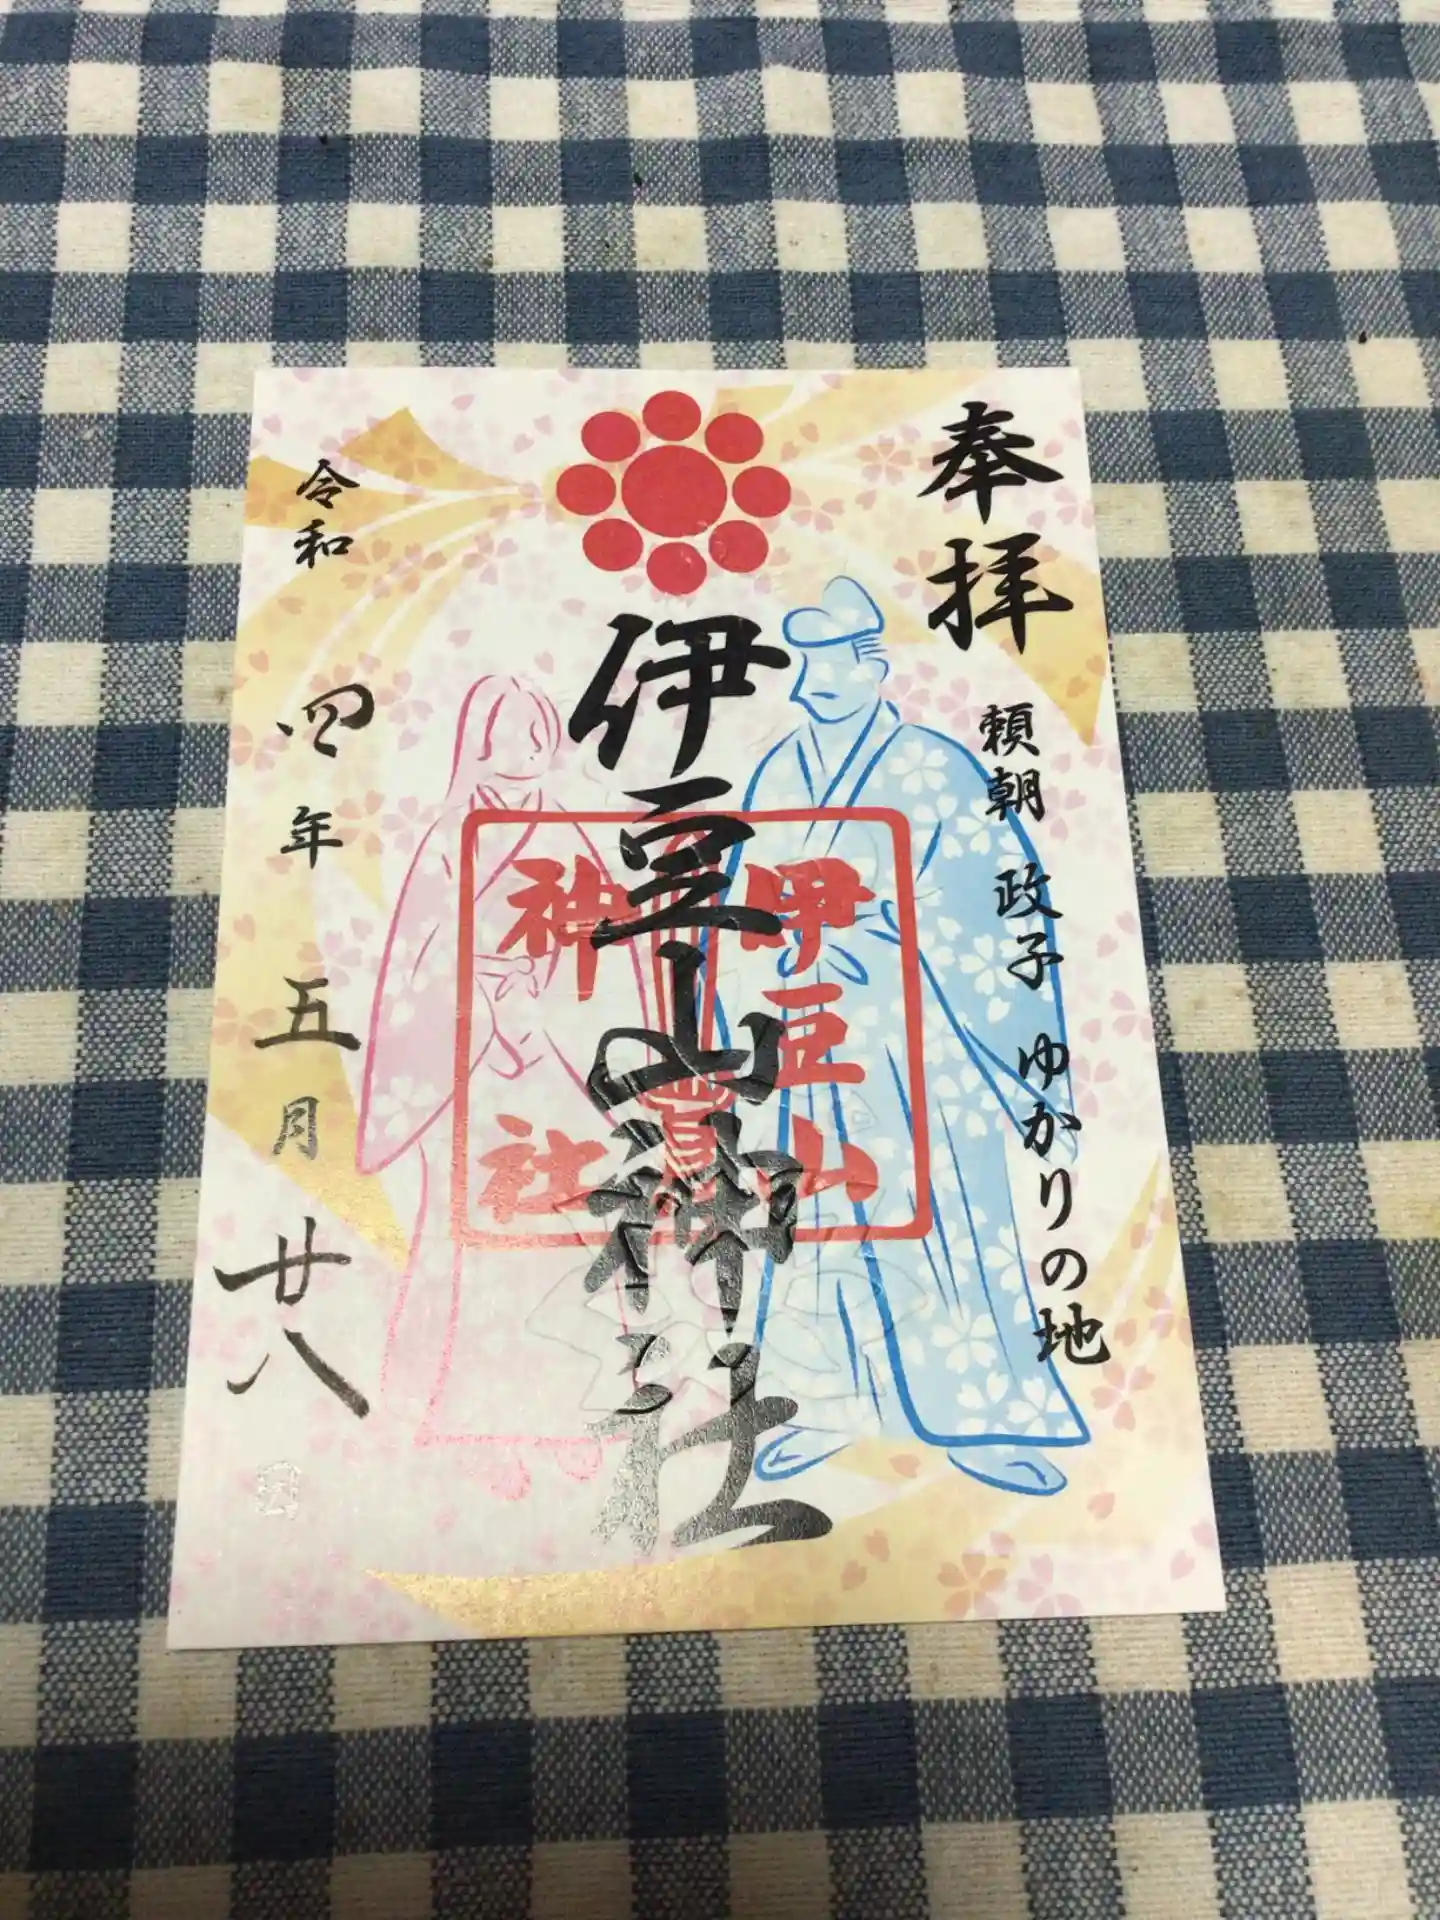 奉拝
頼朝 政子 ゆかりの地
伊豆山神社
伊豆山
神社
令和四年五月廿八